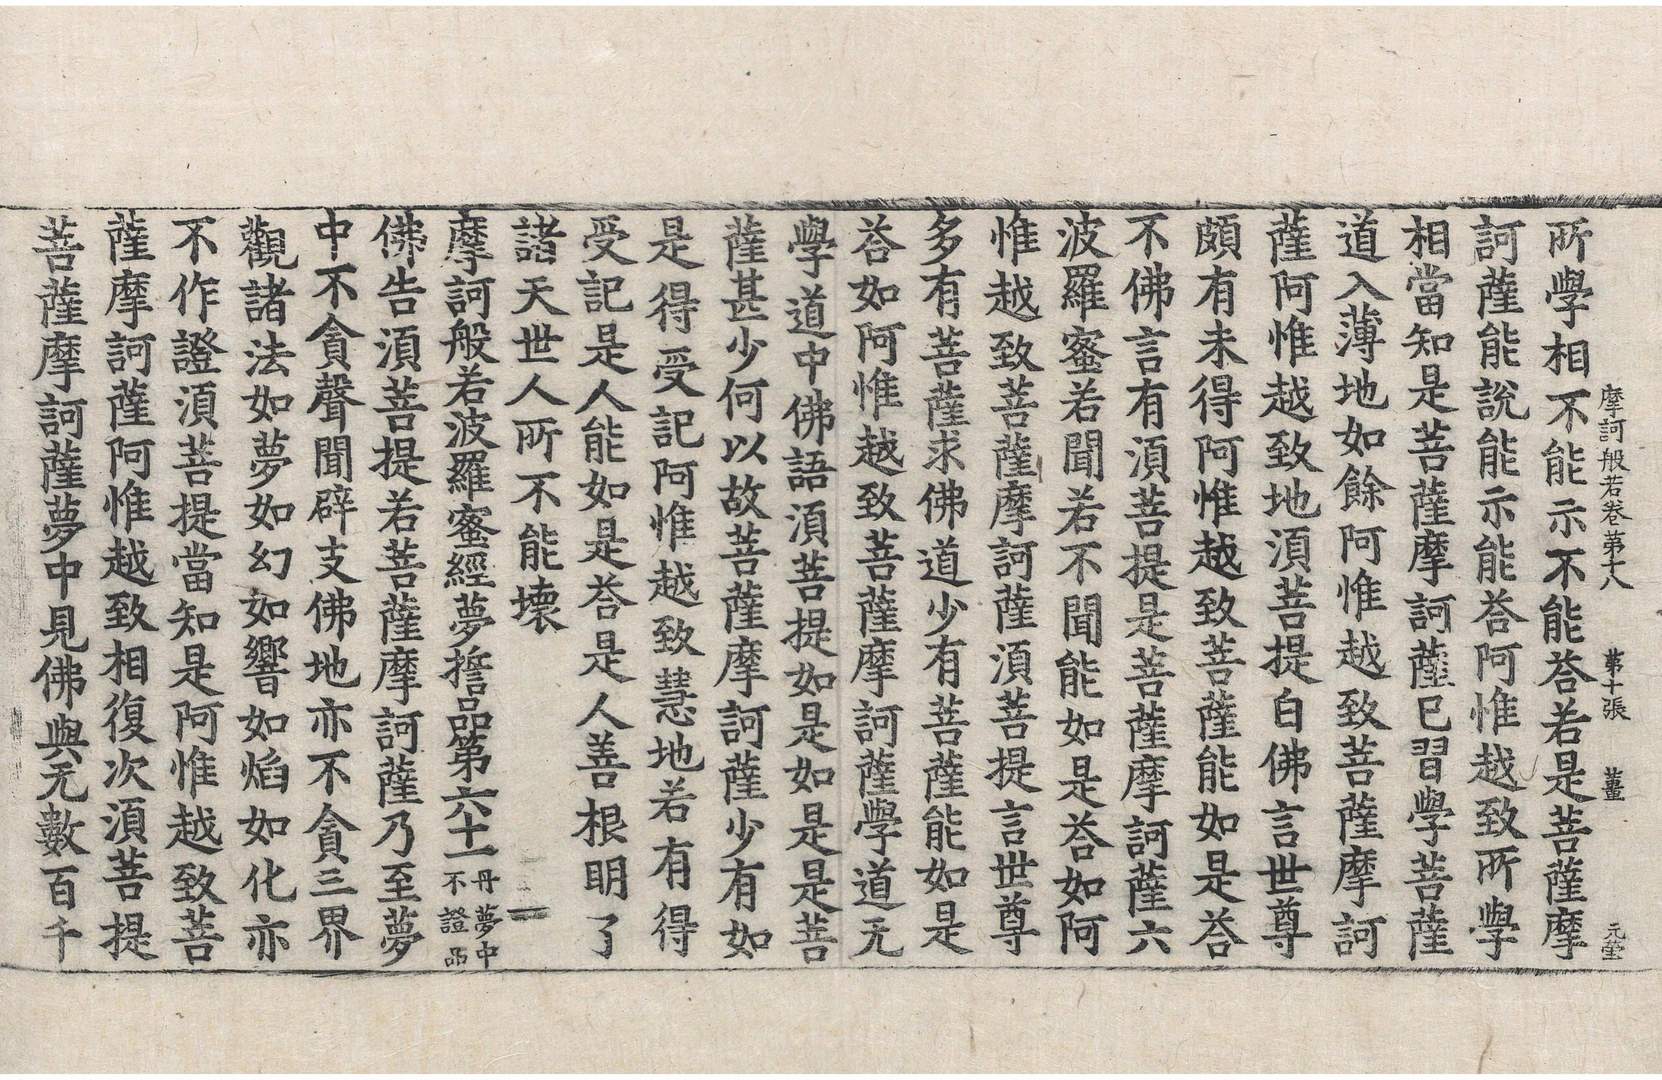 摩訶般若卷第十八　第十張　薑　元瑩
所學相不能示不能荅若是菩薩摩
訶薩能說能示能荅阿惟越致所學
相當知是菩薩摩訶薩已習學菩薩
道入薄地如餘阿惟越致菩薩摩訶
薩阿惟越致地須菩提白佛言世尊
頗有未得阿惟越致菩薩能如是荅
不佛言有須菩提是菩薩摩訶薩六
波羅蜜若聞若不聞能如是荅如阿
惟越致菩薩摩訶薩須菩提言世尊
多有菩薩求佛道少有菩薩能如是
荅如阿惟越致菩薩摩訶薩學道无
學道中佛語須菩提如是如是是菩
薩甚少何以故菩薩摩訶薩少有如
是得受記阿惟越致慧地若有得
受記是人能如是荅是人善根明了
諸天世人所不能壞
摩訶般若波羅蜜經夢誓品第六十一丹夢中不證品
佛告須菩提若菩薩摩訶薩乃至夢
中不貪聲聞辟支佛地亦不貪三界
觀諸法如夢如幻如響如焰如化亦
不作證須菩提當知是阿惟越致菩
薩摩訶薩阿惟越致相復次須菩提
菩薩摩訶薩夢中見佛與无數百千